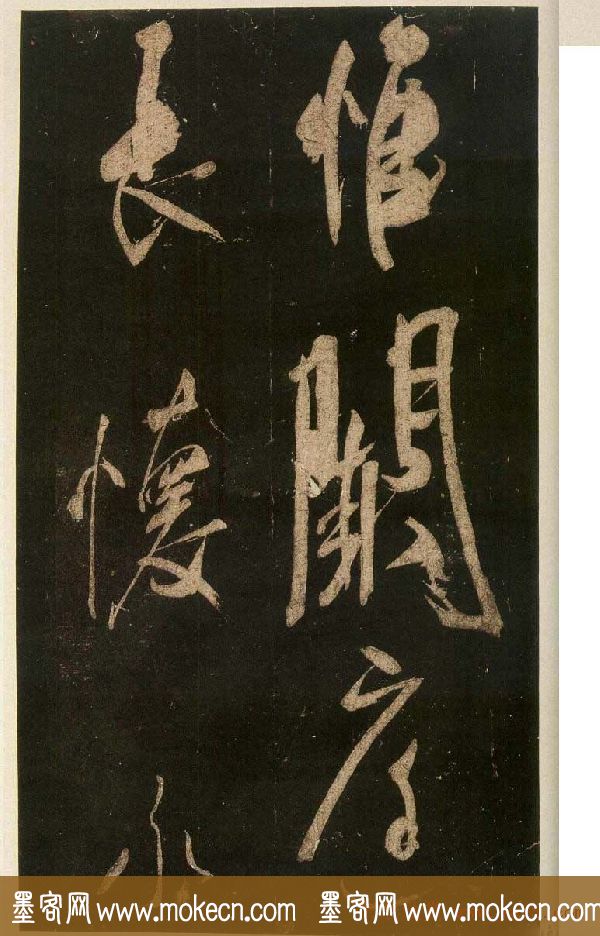 惟闕序
長懷永
墨客网 www.mokecn.com 墨客网 www.mokecn.com